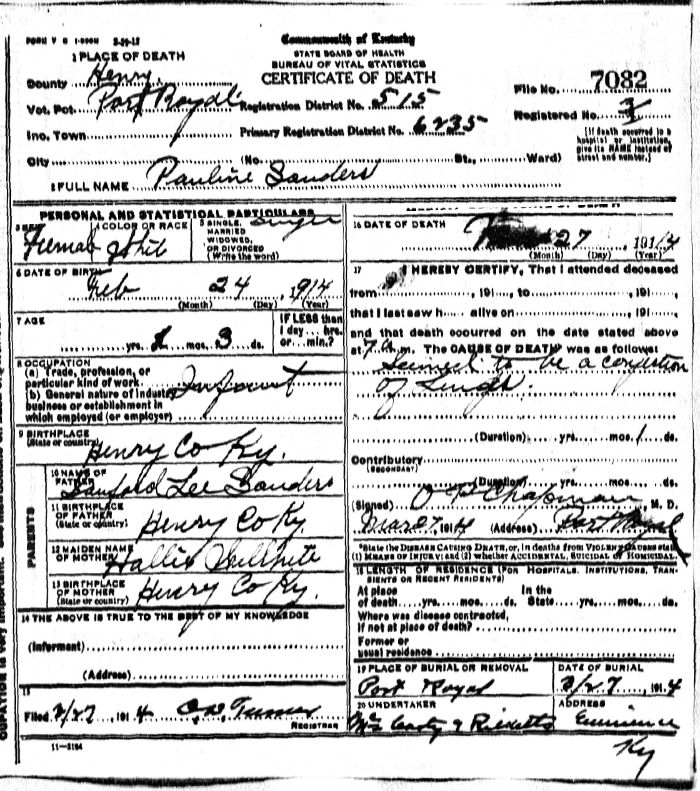 FORM V S 1-500M 3-29-12
Commonwealth of Kentucky
STATE BOARD OF HEALTH
BUREAU OF VITAL STATISTICS
CERTIFICATE OF DEATH
1 PLACE OF DEATH
County Henry
Vot. Pct. Port Royal Registration District No. 515
Inc. Town Primary Registration District No. 6235
City (No. St., Ward)
File No. 7082
Registered No. 3
[If death occurred in a hospital or institution, give its NAME instead of street and number.]
2 FULL NAME Pauline Sanders
PERSONAL AND STATISTICAL PARTICULARS
4 COLOR OR RACE
5 SINGLE, MARRIED WIDOWED, OR DIVORCED (Write the word) Single
6 DATE OF BIRTH
Feb 24 1914
(Month) (Day) (Year)
7 AGE
yrs. 1 mos. 3 ds.
IF LESS than 1 day ... hrs. or ... min.?
8 OCCUPATION
(a) Trade, profession, or particular kind of work
(b) General nature of industry business or establishment in which employed (or employer)
Infant
9 BIRTHPLACE
(State or country) Henry Co Ky.
PARENTS
10 NAME OF FATHER Sanford Lee Sanders
11 BIRTHPLACE OF FATHER (State or country) Henry Co Ky.
12 MAIDEN NAME OF MOTHER Hallie
13 BIRTHPLACE OF MOTHER (State or country) Henry Co Ky.
14 THE ABOVE IS TRUE TO THE BEST OF MY KNOWLEDGE
(Informant)
(Address)
15
Filed 3/27, 1914 Turner
REGISTRAR
11-3184
16 DATE OF DEATH
27, 1914
(Month) (Day) (Year)
17 I HEREBY CERTIFY, That I attended deceased
from , 191 , to , 191 ,
that I last saw h alive on , 191 ,
and that death occurred on the date stated above
at 7 a m. The CAUSE OF DEATH was as follows:
Seemed to be a congestion
of Lungs.
(Duration) yrs. mos. 1 ds.
Contributory
(SECONDARY)
(Duration) yrs. mos. ds.
(Signed) O P Chapman, M. D.
Mar 27, 1914 (Address) Port Royal
*State the DISEASE CAUSING DEATH, or, in deaths from VIOLENT CAUSES state (1) MEANS OF INJURY; and (2) whether ACCIDENTAL, SUICIDAL OR HOMICIDAL.
18 LENGTH OF RESIDENCE (FOR HOSPITALS, INSTITUTIONS, TRANSIENTS OR RECENT RESIDENTS)
At place of death yrs. mos. ds. In the State yrs. mos. ds.
Where was disease contracted, if not at place of death?
Former or usual residence
19 PLACE OF BURIAL OR REMOVAL
Port Royal
DATE OF BURIAL
3/27, 1914
20 UNDERTAKER
McCarty & Ricketts
ADDRESS
Eminence
Ky